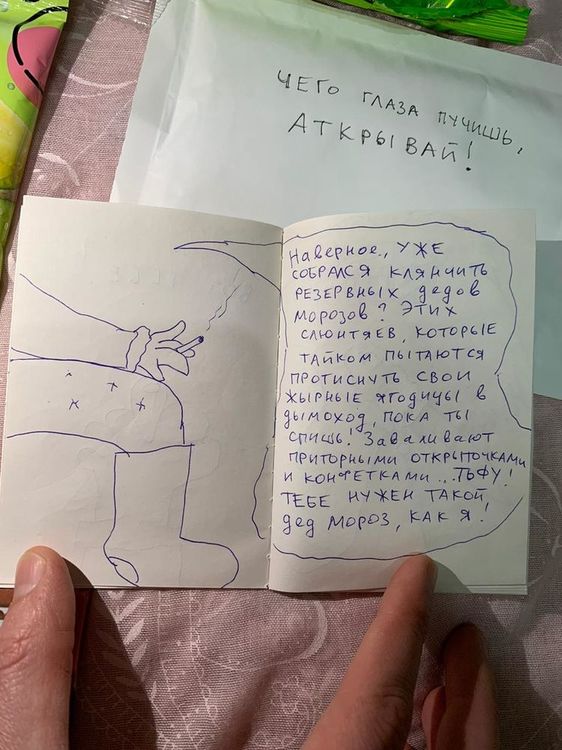 ЧЕГО ГЛАЗА ПУЧИШЬ,
АТКРЫВАЙ!
Наверное, УЖЕ
СОБРАЛСЯ КЛЯНЧИТЬ
РЕЗЕРВНЫХ ДЕДОВ
МОРОЗОВ? ЭТИХ
СЛЮНТЯЕВ, КОТОРЫЕ
ТАЙКОМ ПЫТАЮТСЯ
ПРОТИСНУТЬ СВОИ
ЖЫРНЫЕ ЯГОДИЦЫ В
ДЫМОХОД, ПОКА ТЫ
СПИШЬ! ЗАВАЛИВАЮТ
ПРИТОРНЫМИ ОТКРЫТОЧКАМИ
И КОНФЕТКАМИ... ТЬФУ!
ТЕБЕ НУЖЕН ТАКОЙ
ДЕД МОРОЗ, КАК Я!